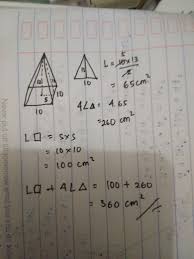 10
10
s
L = 10 x 13
2
= 65 cm²
10
4L△ = 4.65
= 260 cm²
L□ = s x s
= 10 x 10
= 100 cm²
L□ + 4L△ = 100 + 260
= 360 cm²